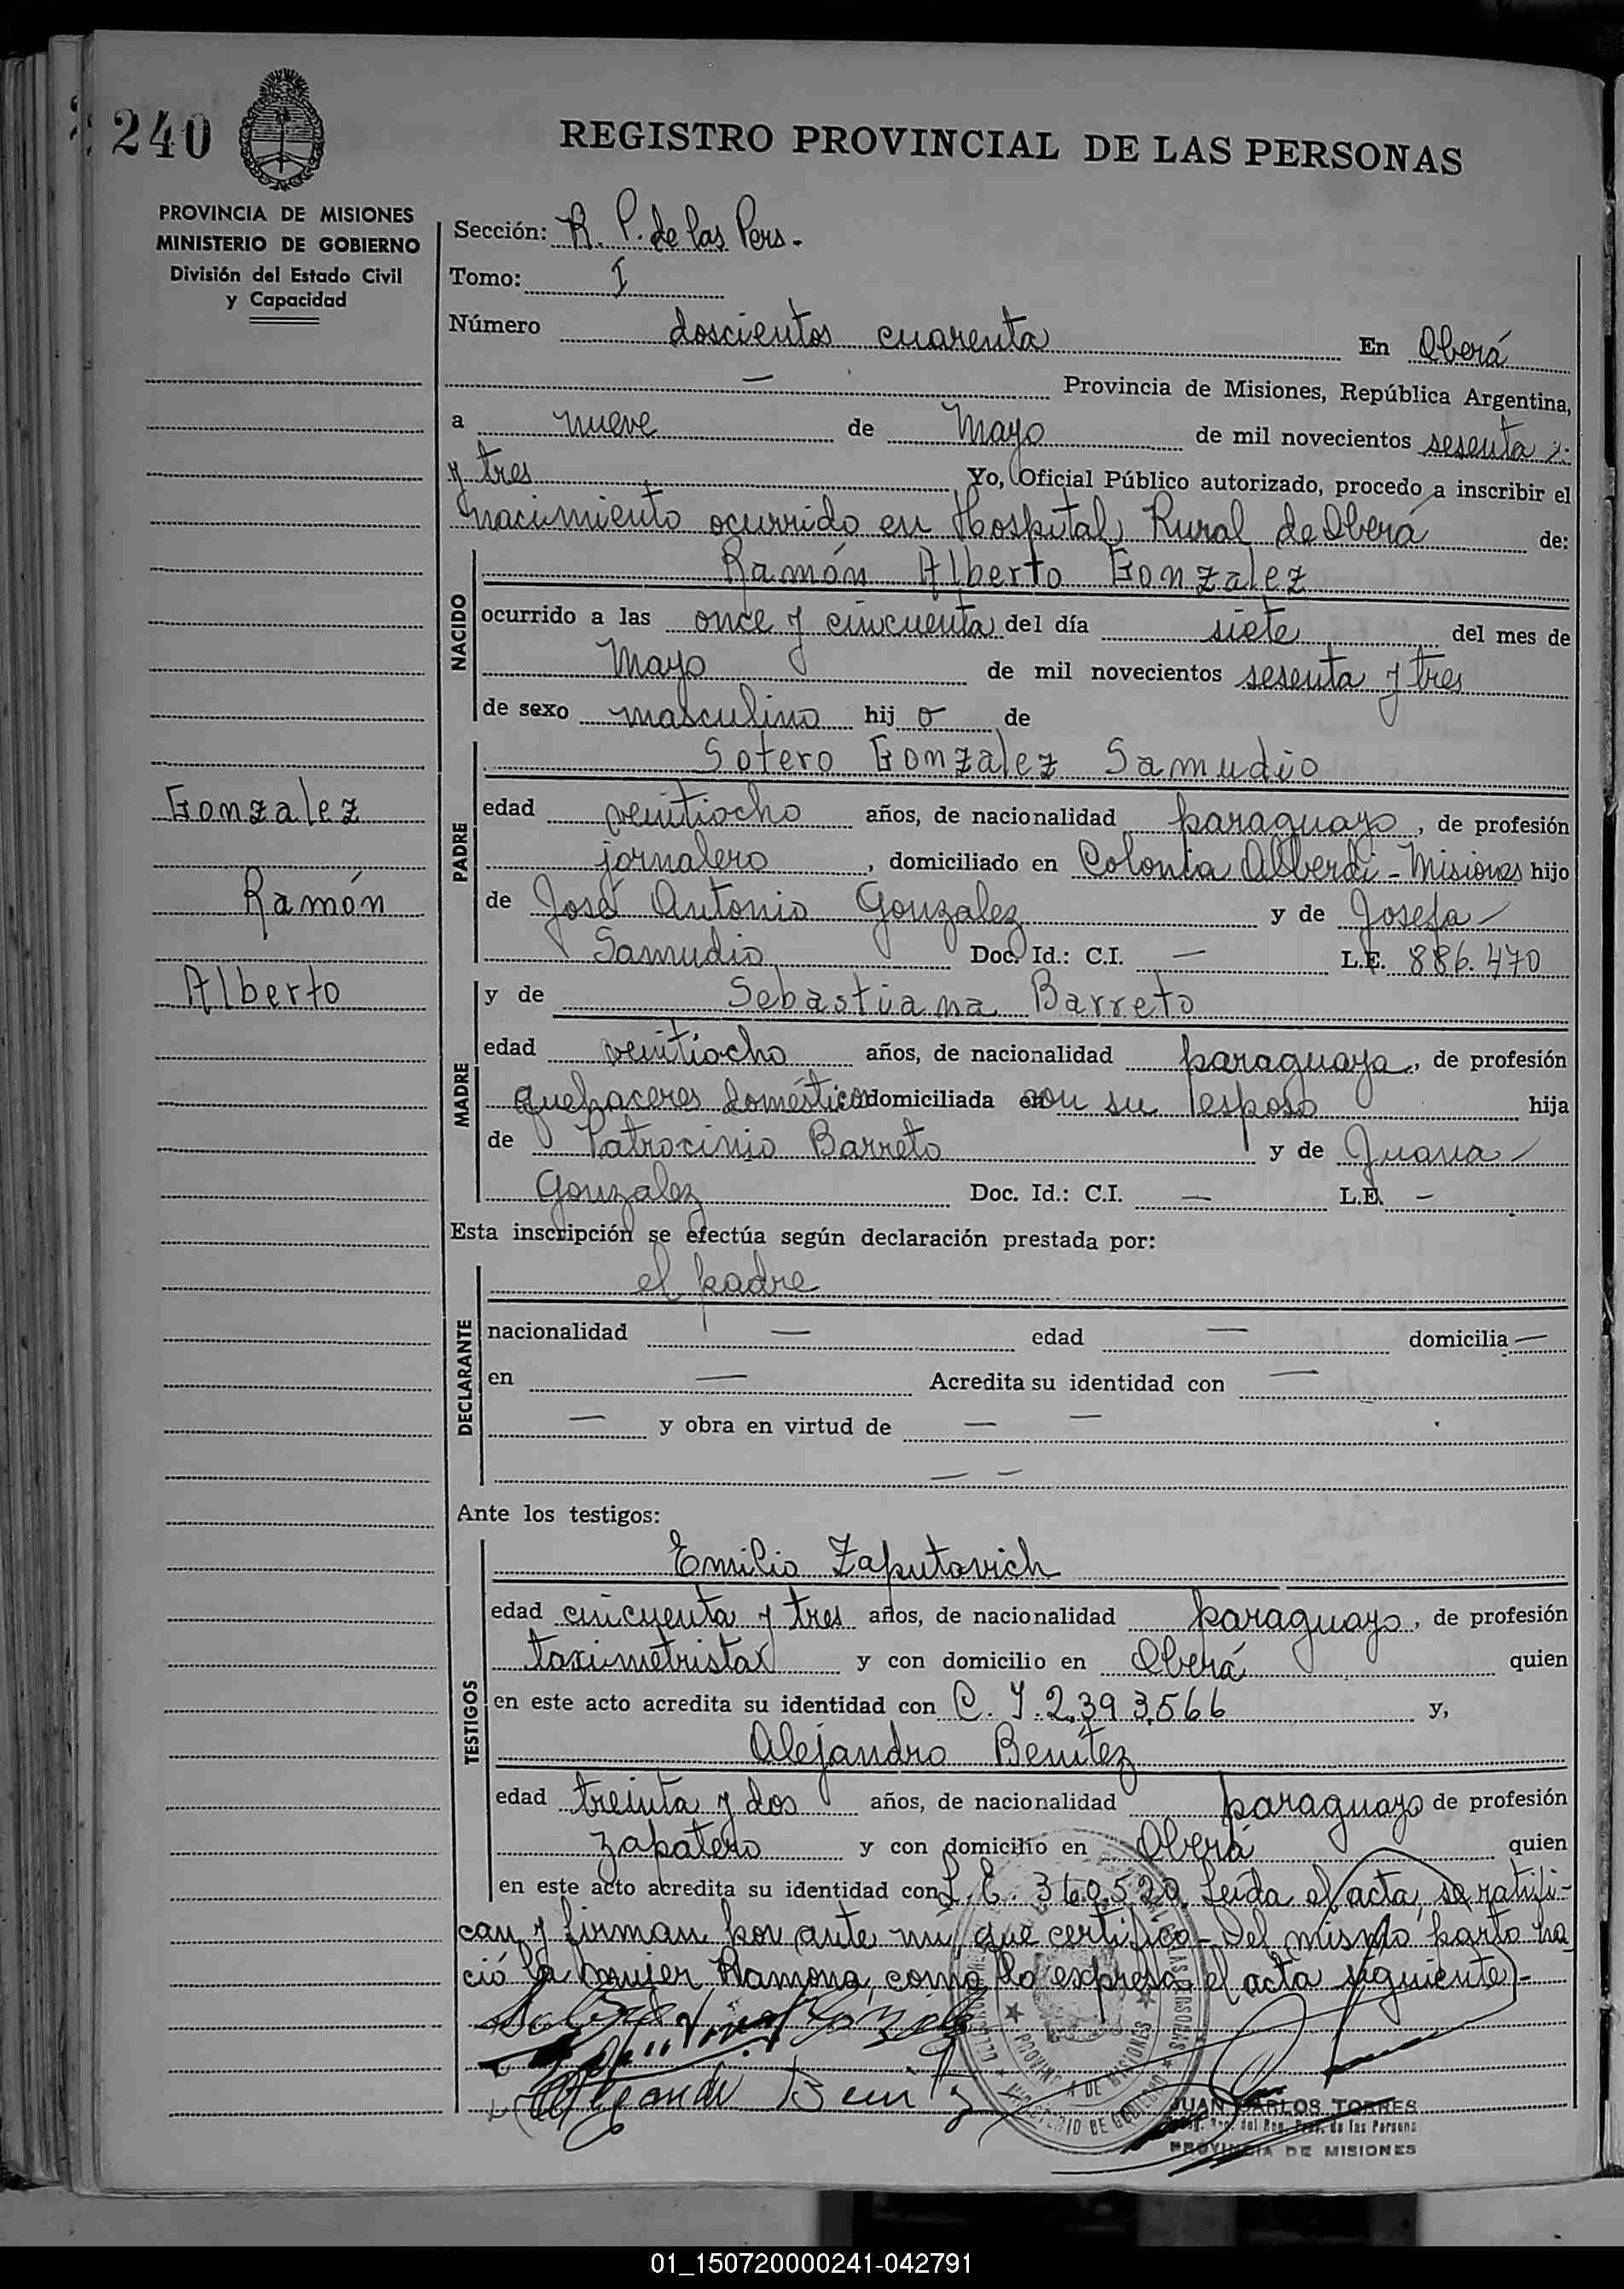 240
REGISTRO PROVINCIAL DE LAS PERSONAS
PROVINCIA DE MISIONES
MINISTERIO DE GOBIERNO
División del Estado Civil
y Capacidad
Sección: R. P. de las Pers.
Tomo: I
Número doscientos cuarenta En Oberá
— Provincia de Misiones, República Argentina,
a nueve de Mayo de mil novecientos sesenta
y tres Yo, Oficial Público autorizado, procedo a inscribir el
nacimiento ocurrido en Hospital Rural de Oberá de:
NACIDO
Ramón Alberto Gonzalez
ocurrido a las once y cincuenta del día siete del mes de
Mayo de mil novecientos sesenta y tres
de sexo masculino hij o de
PADRE
Sotero Gonzalez Samudio
edad veintiocho años, de nacionalidad paraguayo, de profesión
jornalero, domiciliado en Colonia Alberdi - Misiones hijo
de José Antonio Gonzalez y de Josefa
Samudio Doc. Id.: C.I. — L.E. 886.470
Gonzalez
Ramón
Alberto
MADRE
y de Sebastiana Barreto
edad veintiocho años, de nacionalidad paraguaya, de profesión
quehaceres domésticos domiciliada en con su esposo hija
de Patrocinio Barreto y de Juana
Gonzalez Doc. Id.: C.I. — L.E. —
Esta inscripción se efectúa según declaración prestada por:
DECLARANTE
el padre
nacionalidad — edad — domicilia —
en — Acredita su identidad con —
— y obra en virtud de — —
— —
Ante los testigos:
TESTIGOS
Emilio Zaputovich
edad cincuenta y tres años, de nacionalidad paraguayo, de profesión
taximetrista y con domicilio en Oberá quien
en este acto acredita su identidad con C. I. 2.393.566 y,
Alejandro Benítez
edad treinta y dos años, de nacionalidad paraguayo de profesión
zapatero y con domicilio en Oberá quien
en este acto acredita su identidad con L. E. 360.520. Leida el acta, se ratifi-
can y firman por ante mi, que certifico - Del mismo parto na
ció la mujer Ramona, como lo expresa el acta siguiente -
Alejandr Benitz
PROVINCIA DE MISIONES
MINISTERIO DE GOBIERNO
JUAN CARLOS TORRES
Reg. Prov. de las Persons
PROVINCIA DE MISIONES
01_150720000241-042791